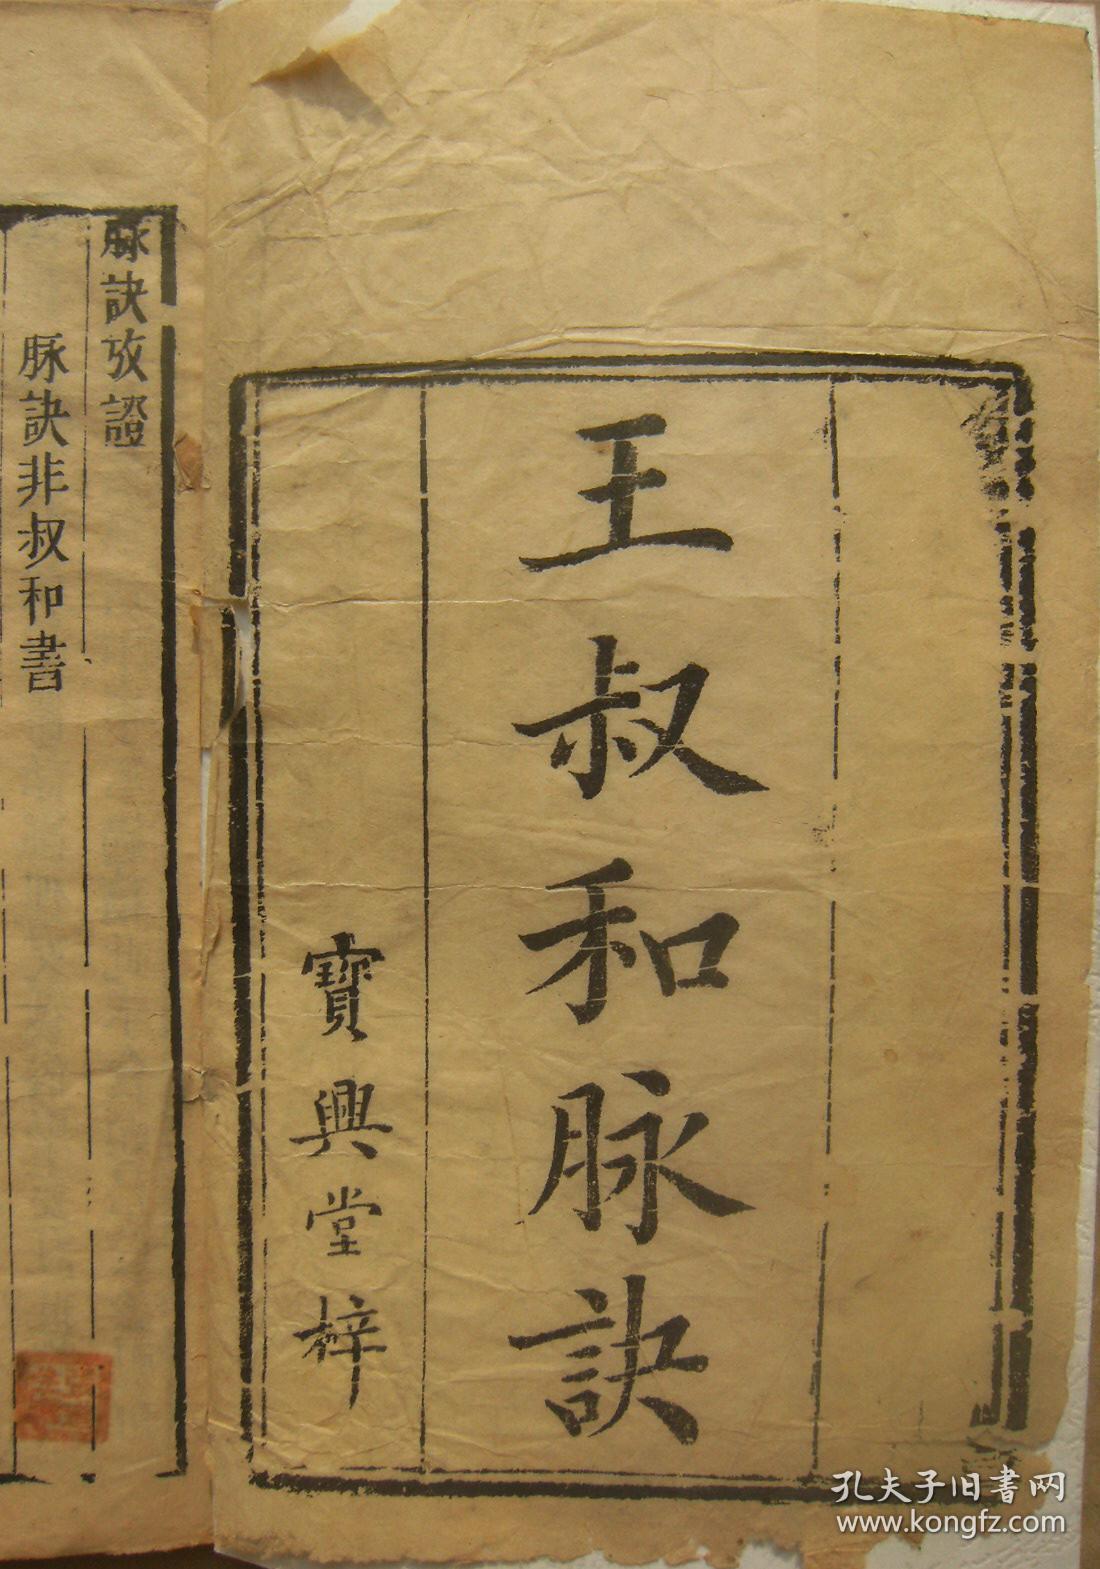 王叔和脉訣
寶興堂梓
脉訣攷證
脉訣非叔和書
孔夫子旧书网
www.kongfz.com